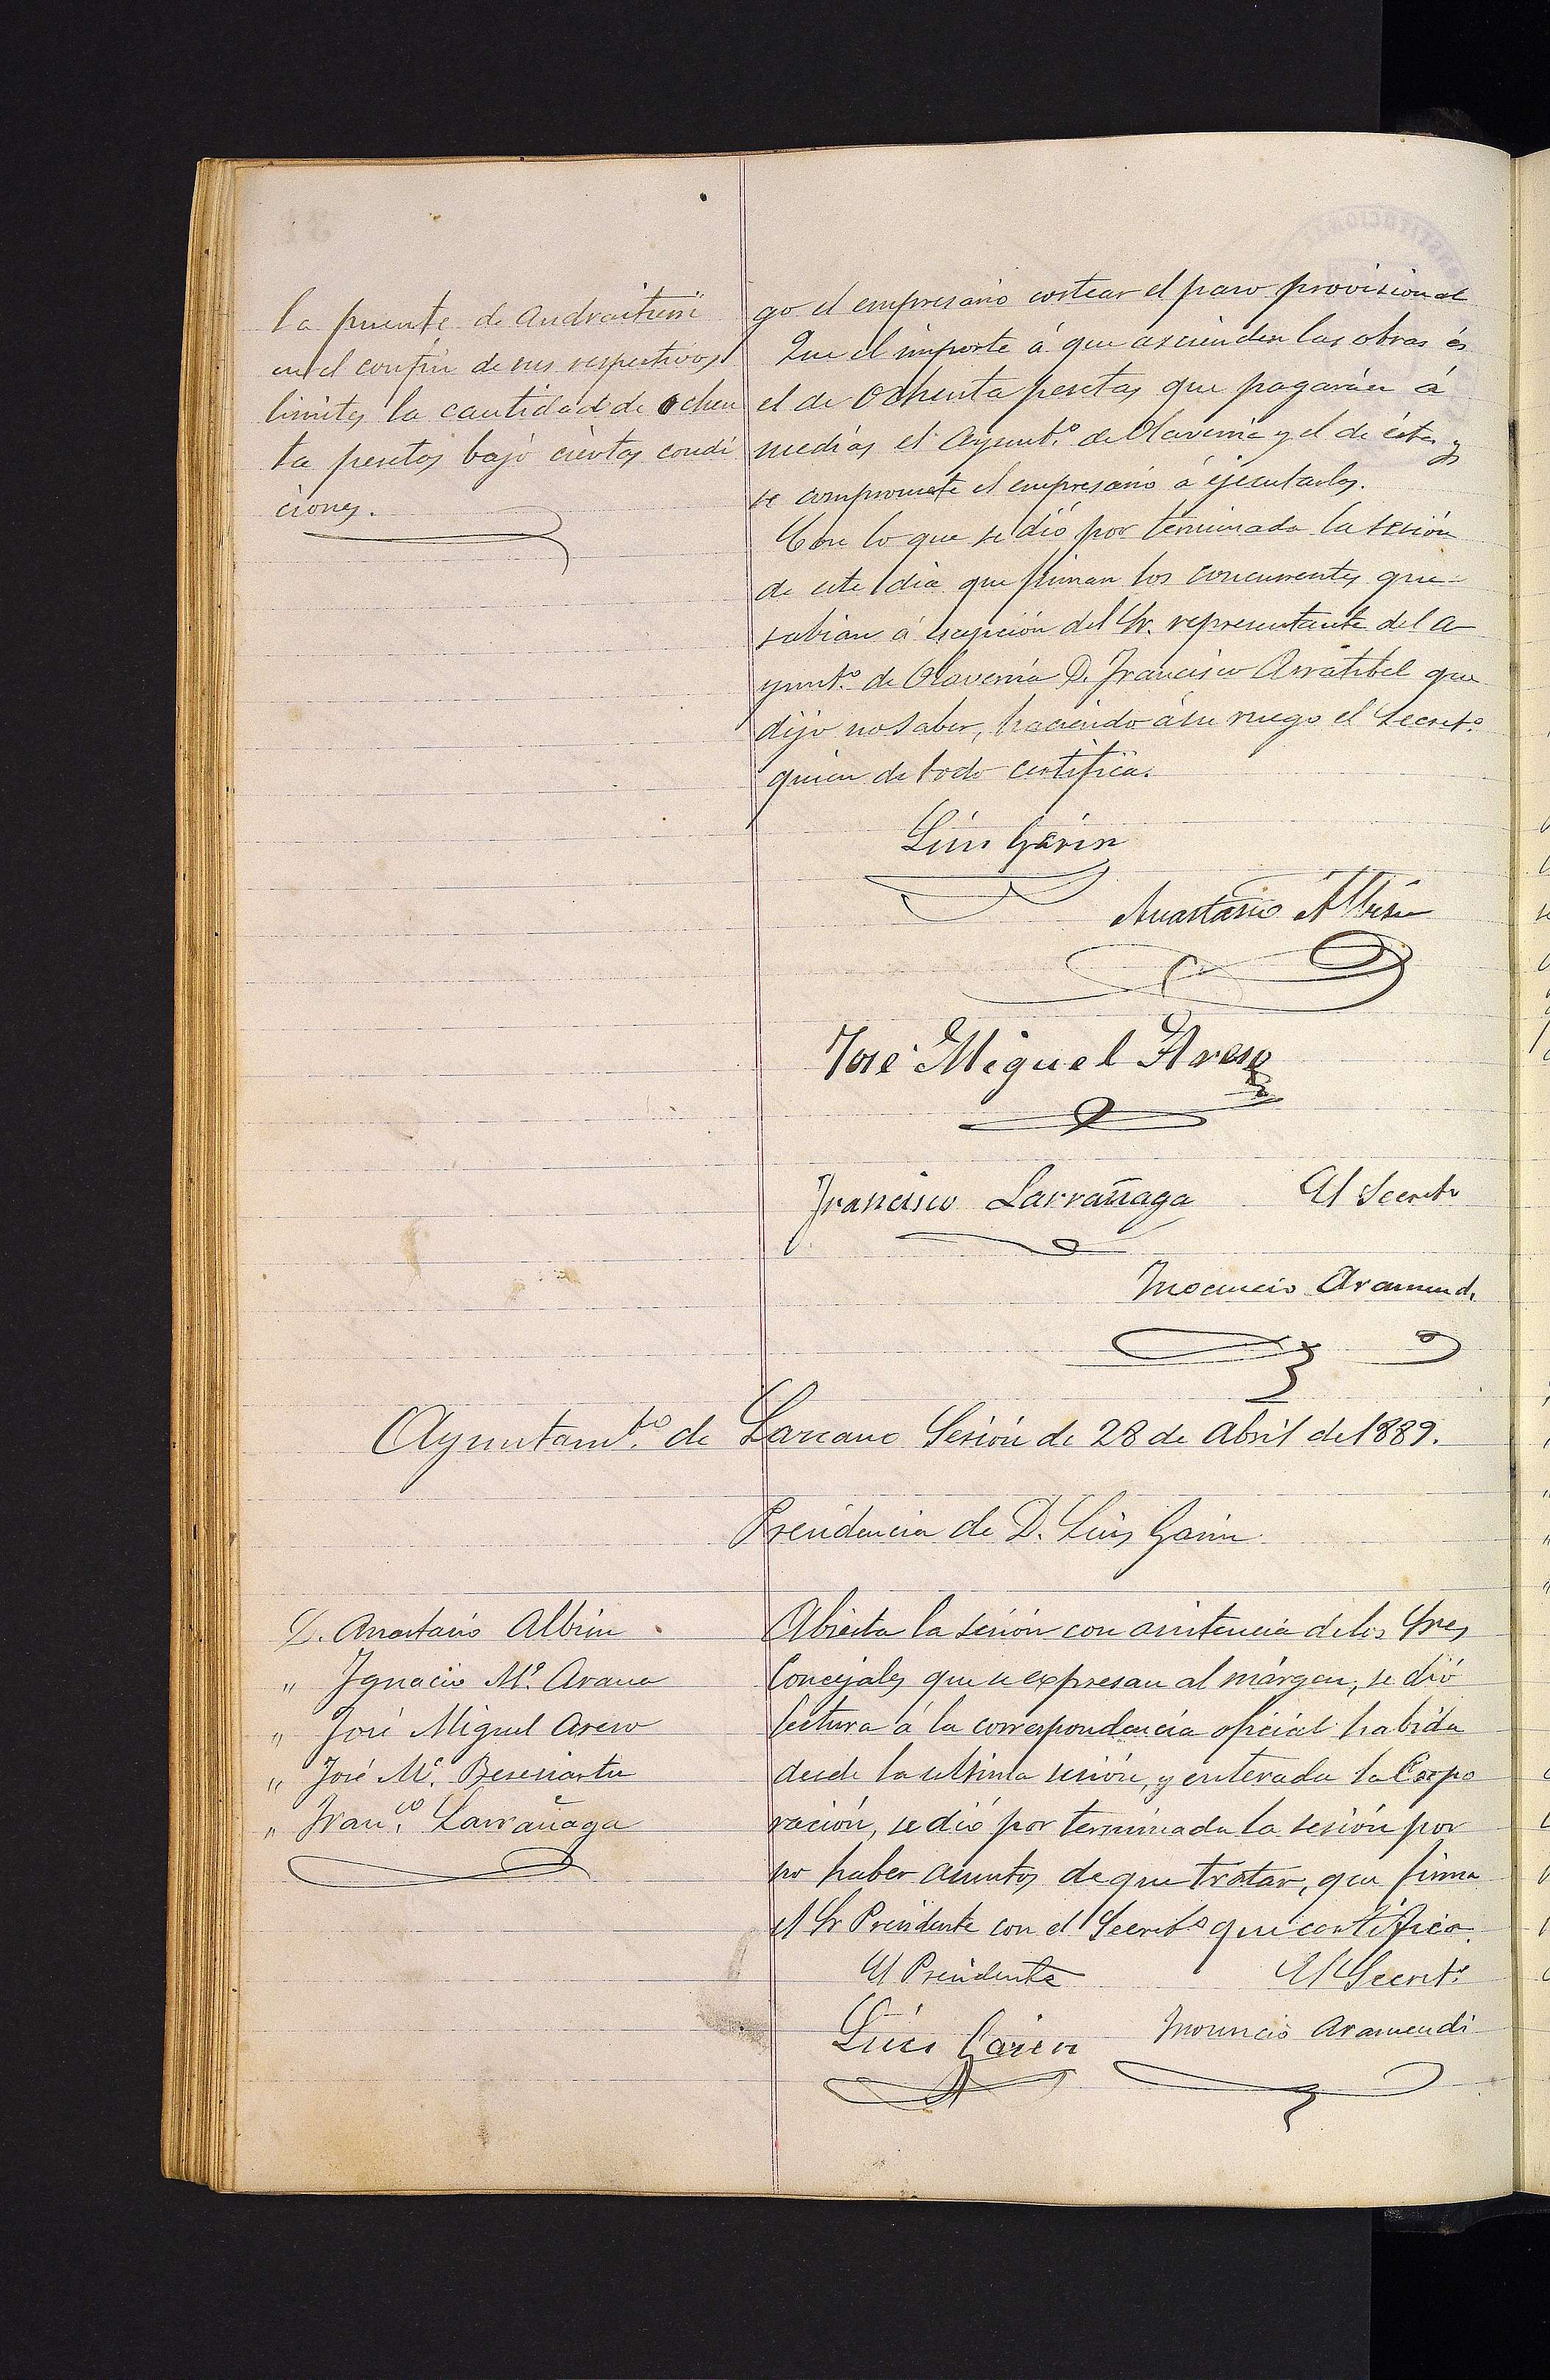 la puente de Andraitursi
en el confin de sus respectivos
limites la cantidad de ochen
ta pesetas bajo ciertas condi
ciones.
go el empresario costear el paso provisional
Que el importe á que ascienden las obras es
el de Ochenta pesetas que pagarán á
medias el Ayunt.º de Olaverria y el de ésta y
se compromete el empresario á ejecutarlas.
Con lo que se dió por terminada la sesión
de este dia que firman los concurrentes que
sabian á escepción del Sr. representante del a
yunt.º de Olaverria D. Francisco Arratibel que
dijo no saber, haciendo á su ruego el Secret.º
quien de todo certifica.
Luis Garin
Anastasio Albisu
José Miguel Areso
Francisco Larrañaga El Secret.º
Inocencio Aramendi
Ayuntam.to de Lazcano Sesión de 28 de Abril de 1889.
Presidencia de D. Luis Garin
D. Anastasio Albisu
" Ignacio M.ª Arana
" José Miguel Areso
" José M.ª Beresiartu
" Fran.co Larrañaga
Abierta la sesión con asistencia de los Sres
Concejales que se expresan al márgen, se dió
lectura á la correspondencia oficial habida
desde la ultima sesión, y enterada la Corpo
ración, se dió por terminada la sesión por
no haber asuntos de que tratar, que firma
el Sr Presidente con el Secret.º que certifica.
El Presidente El Secret.º
Luis Garin Inocencio Aramendi